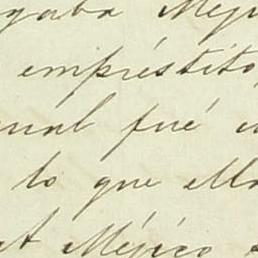 gaba Méji
empréstito
ual fué
lo que
Méjico